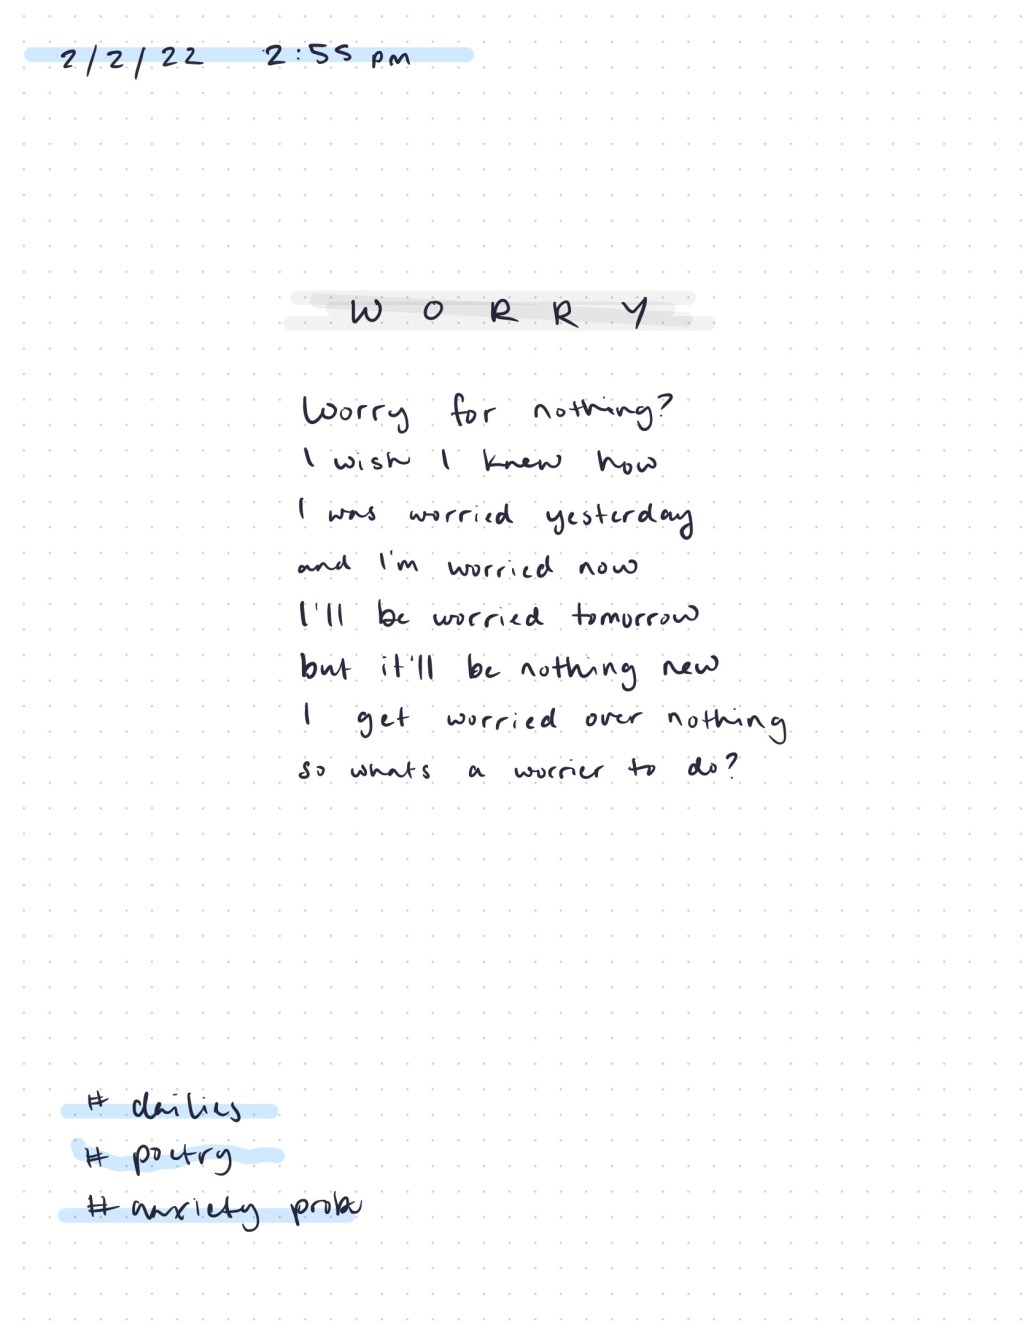 2/2/22 2:55 pm
WORRY
Worry for nothing?
I wish I knew how
I was worried yesterday
and I'm worried now
I'll be worried tomorrow
but it'll be nothing new
I get worried over nothing
so whats a worrier to do?
# dailies
# poetry
# anxiety prob